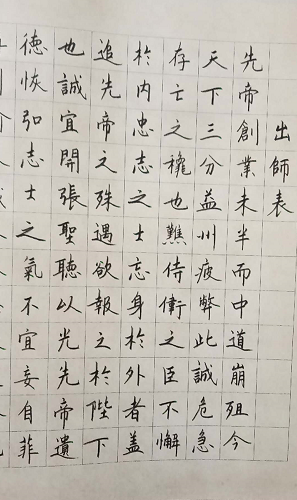 出師表
先帝創業未半而中道崩殂今
天下三分益州疲弊此誠危急
存亡之穐也侍衛之臣不懈
於内忠志之士忘身於外者盖
追先帝之殊遇欲報之於陛下
也誠宜開張聖聽以光先帝遺
徳恢弘志士之氣不宜妄自菲